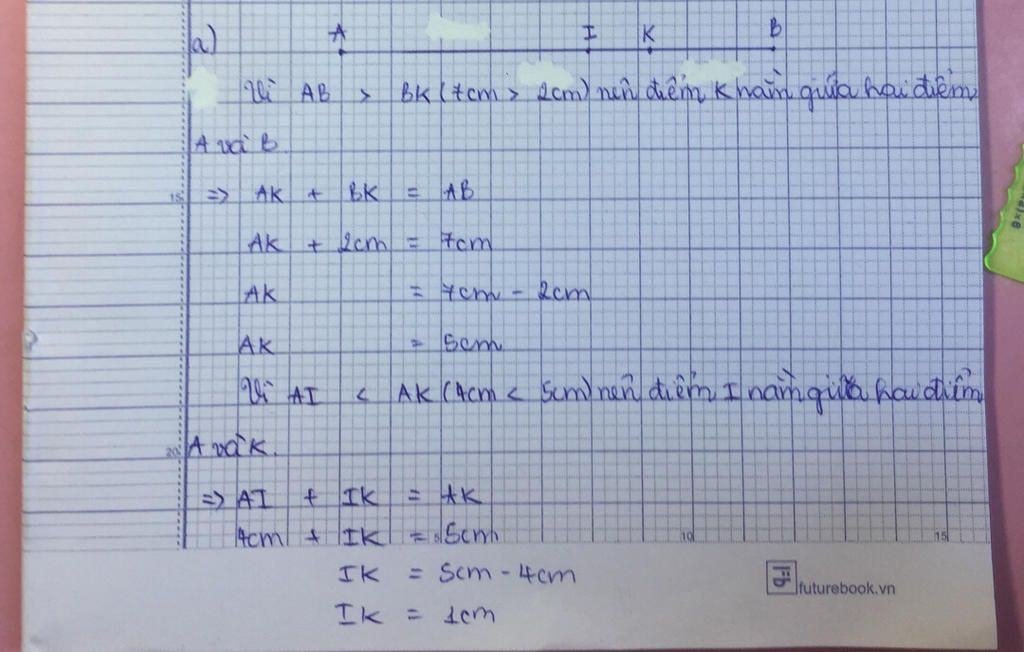 a)
A I K B
Vì AB > BK (7cm > 2cm) nên điểm K nằm giữa hai điểm
A và B
15
=> AK + BK = AB
AK + 2cm = 7cm
AK = 7cm - 2cm
AK = 5cm
Vì AI < AK (4cm < 5cm) nên điểm I nằm giữa hai điểm
20
A và K.
=> AI + IK = AK
4cm + IK = 5cm
5 10 15
IK = 5cm - 4cm
IK = 1cm
futurebook.vn